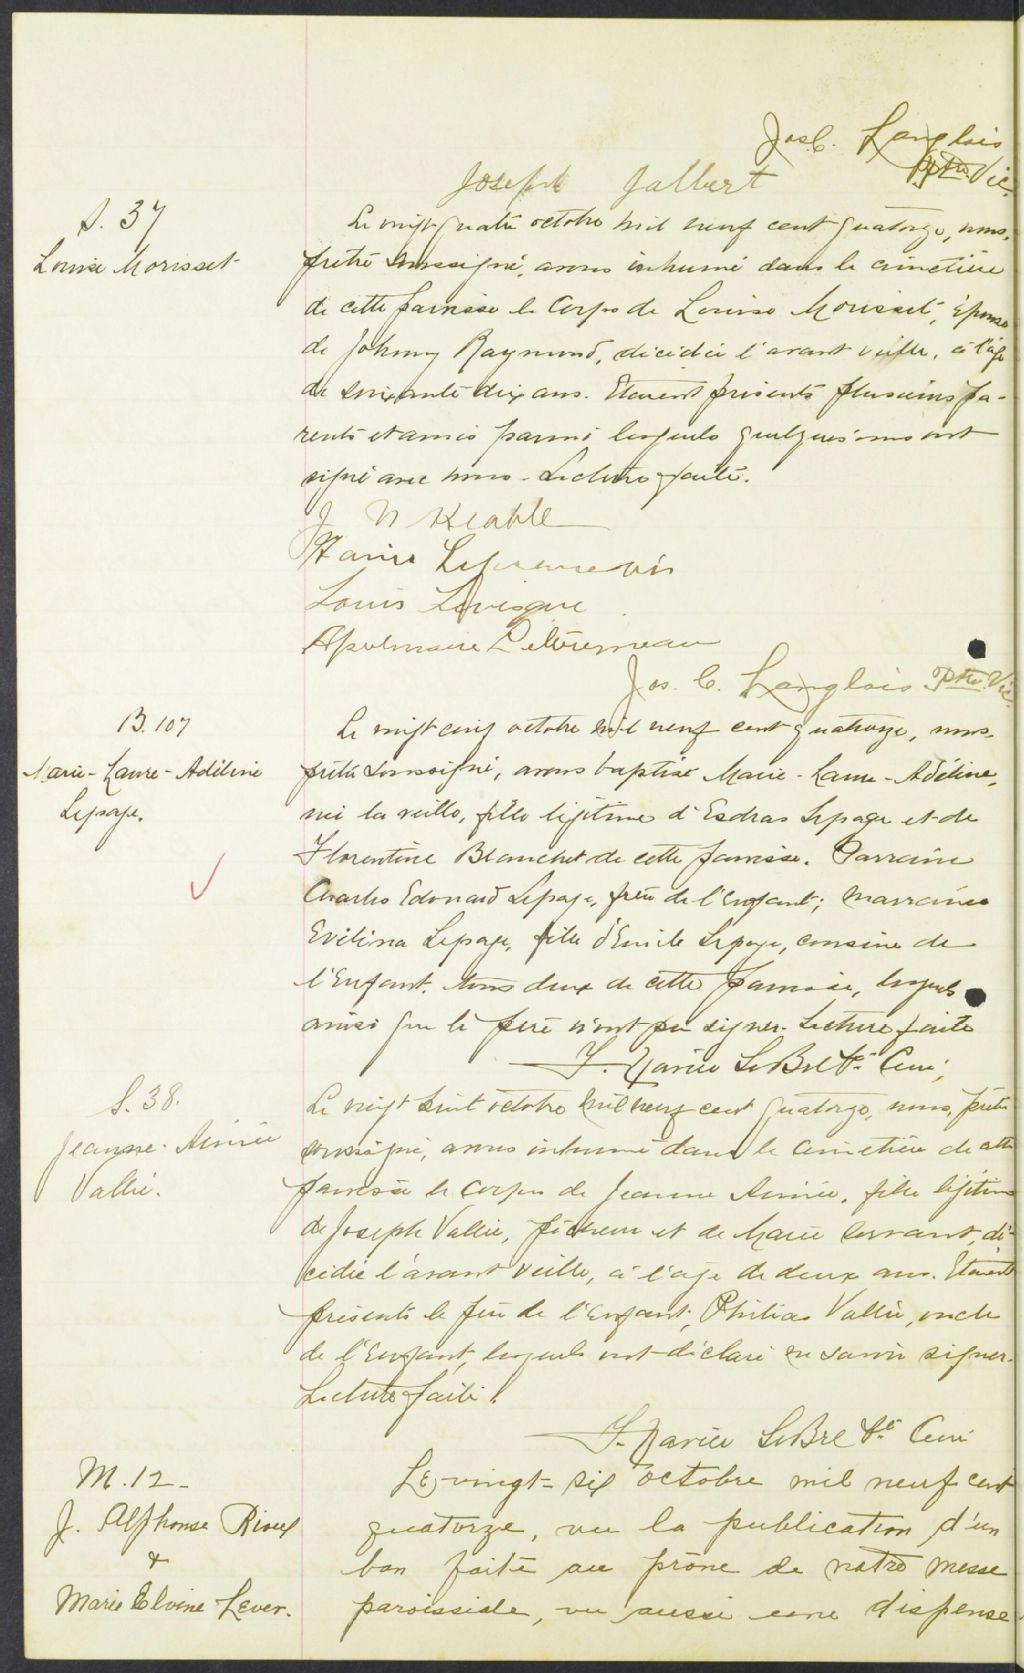 Jos C. Langlois
Ptre Vic.
Joseph Jalbert
S. 37
Louise Morisset
Le vingt quatre octobre mil neuf cent quatorze, nous,
prêtre soussigné, avons inhumé dans le cimetière
de cette paroisse le corps de Louise Morisset, épouse
de Johnny Raymond, décédée l'avant veille, à l'âge
de soixante dix ans. Etaient présents plusieurs pa-
rents et amis parmi lesquels quelques'uns ont
signé avec nous - Lecture faite.
J N Keable
Louis Lévesque
Apolinaire Letourneau
Jos. C. Langlois Ptre. Vic.
B. 107
Marie-Laure-Adéline
Lepage.
Le vingt cinq octobre mil neuf cent quatorze, nous,
prêtre soussigné, avons baptisé Marie-Laure-Adéline,
née la veille, fille légitime d'Esdras Lepage et de
Florentine Blanchet de cette paroisse. Parrain
Charles Edouard Lepage, frère de l'enfant; marraine
Evélina Lepage, fille d'Emile Lepage, cousine de
l'Enfant. tous deux de cette paroisse, lesquels
ainsi que le père n'ont pu signer. Lecture faite
Curé,
S. 38.
Jeanne-Aimée
Vallée.
Le vingt huit octobre mil neuf cent quatorze, nous, prêtre
soussigné, avons inhumé dans le cimetière de cette
paroisse le corps de Jeanne Aimée, fille légitime
de Joseph Vallée, pêcheur et de Marie dé-
cédée l'avant veille, à l'âge de deux ans. Etaient
présents le père de l'Enfant, Philias Vallée, oncle
de l'Enfant, lesquels ont déclaré ne savoir signer.
Lecture faite.
Curé
M. 12-
J. Alphonse Rioux
&
Marie Elvine Lever.
Le vingt-six octobre mil neuf cent
quatorze, vu la publication d'un
ban faite au prône de notre messe
paroissiale, vu aussi une dispense